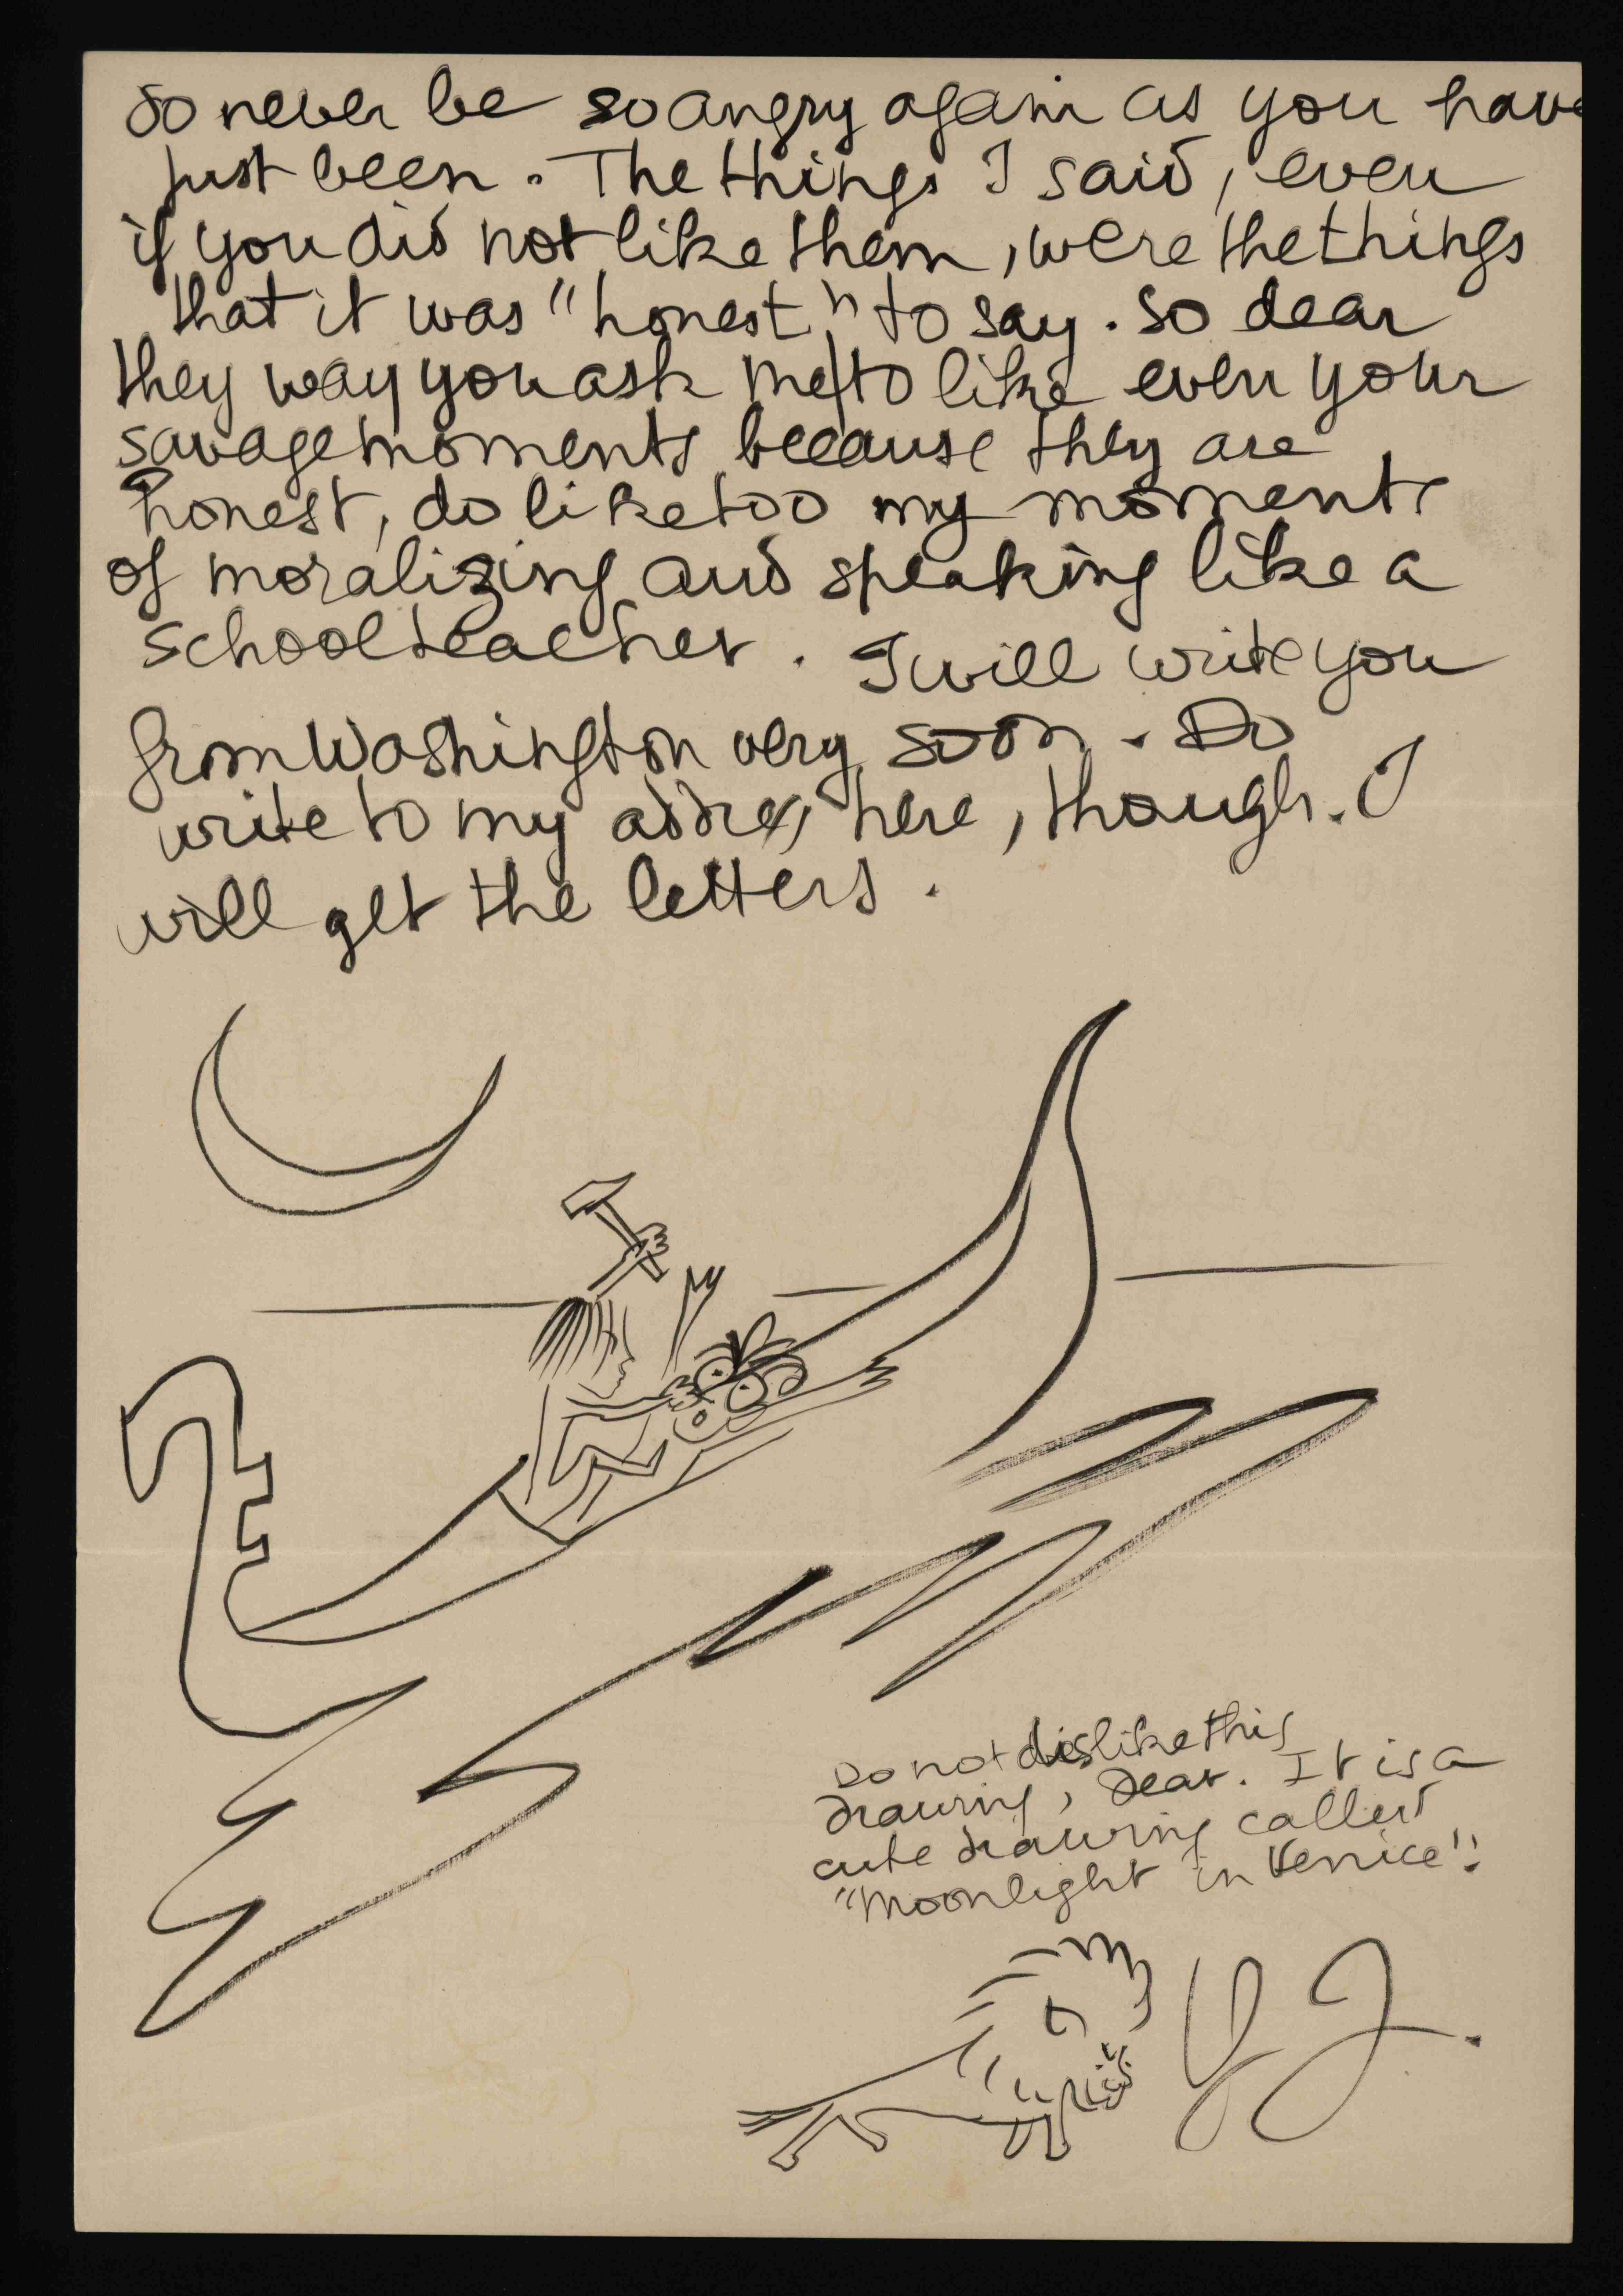 so never be so angry again as you have
just been. The things I said, even
if you did not like them, were the things
that it was "honest" to say. So dear
they way you ask me to like even your
savage moments because they are
honest, do like too my moments
of moralizing and speaking like a
schoolteacher. I will write you
from Washington very soon. Do
write to my address here, though. I
will get the letters.
Do not dislike this
drawing, dear. It is a
cute drawing called
"Moonlight in Venice"!